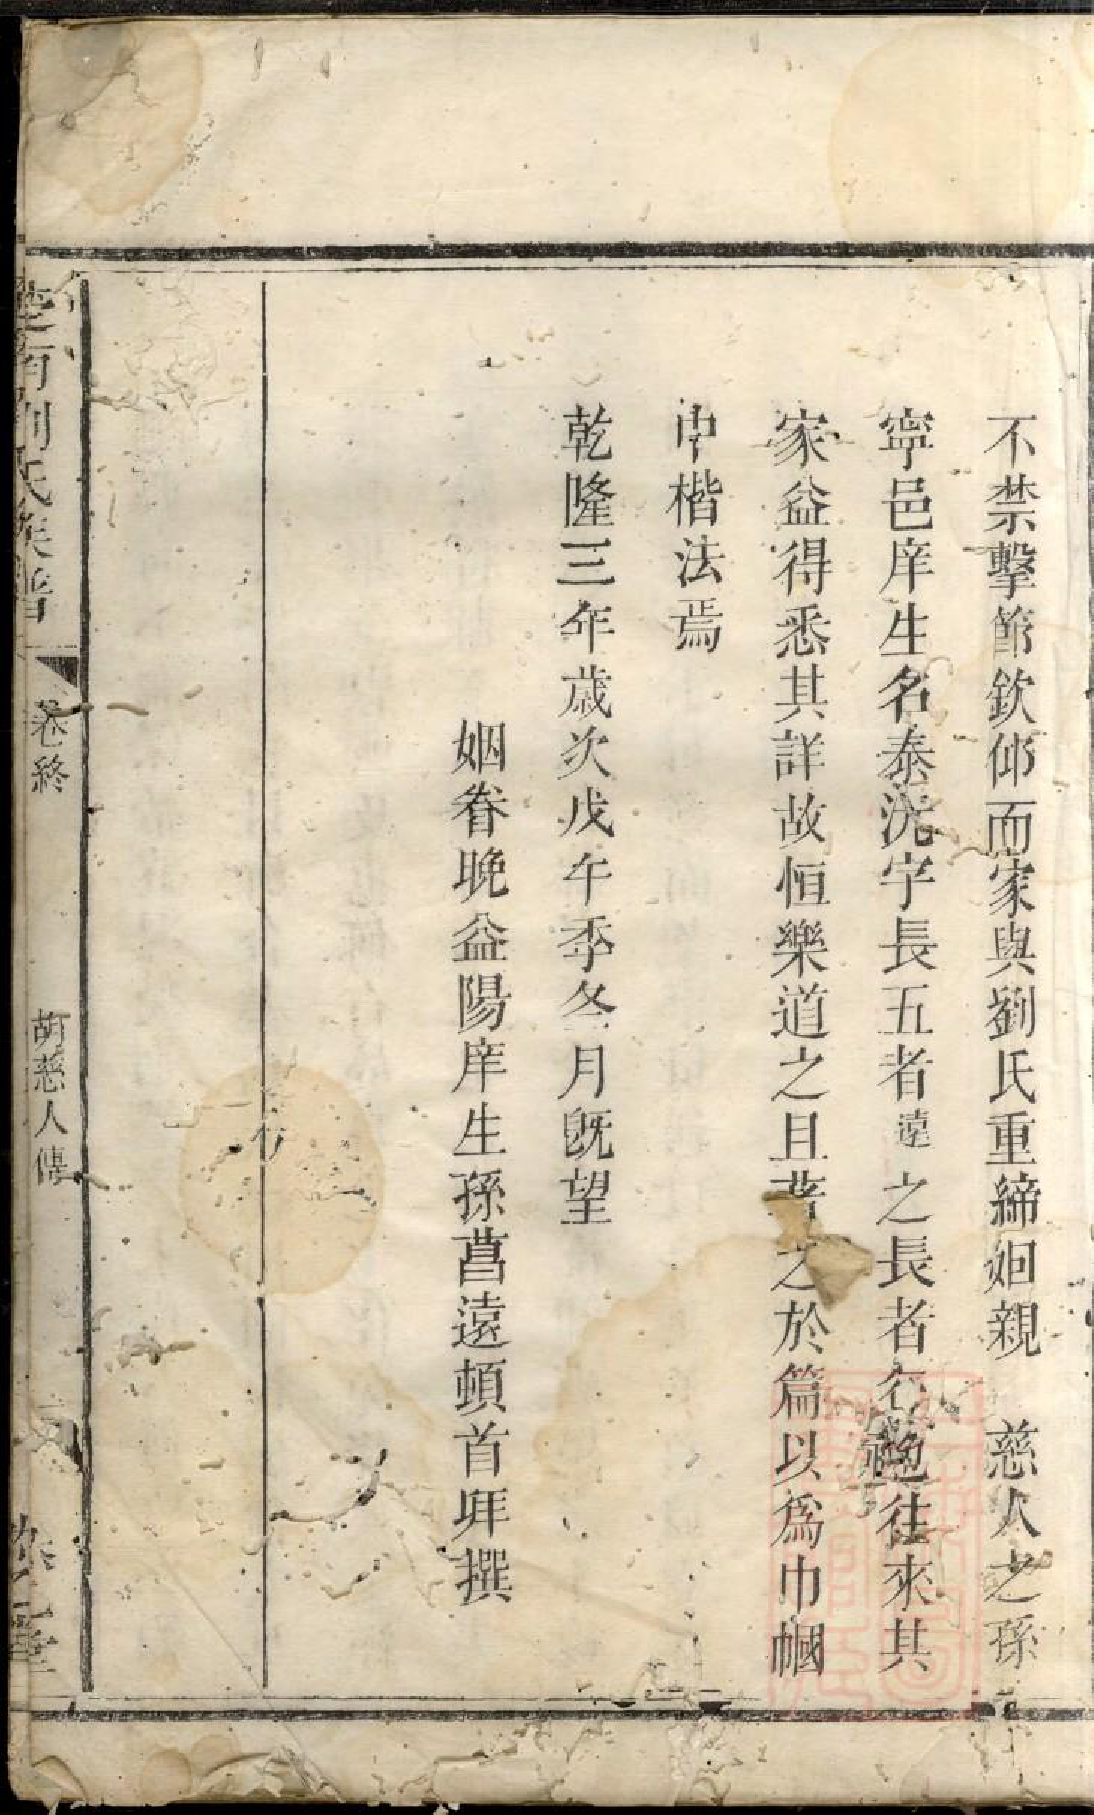 不禁擊節欽仰而家與劉氏重締姻親　慈人之孫
寧邑庠生名泰洸字長五者遠之長者行也往來其
家益得悉其詳故恒樂道之且書之於篇以爲巾幗
中楷法焉
乾隆三年歲次戊午季冬月旣望
姻眷晚益陽庠生孫菖遠頓首拜撰
劉氏族譜
卷終
胡慈人傳